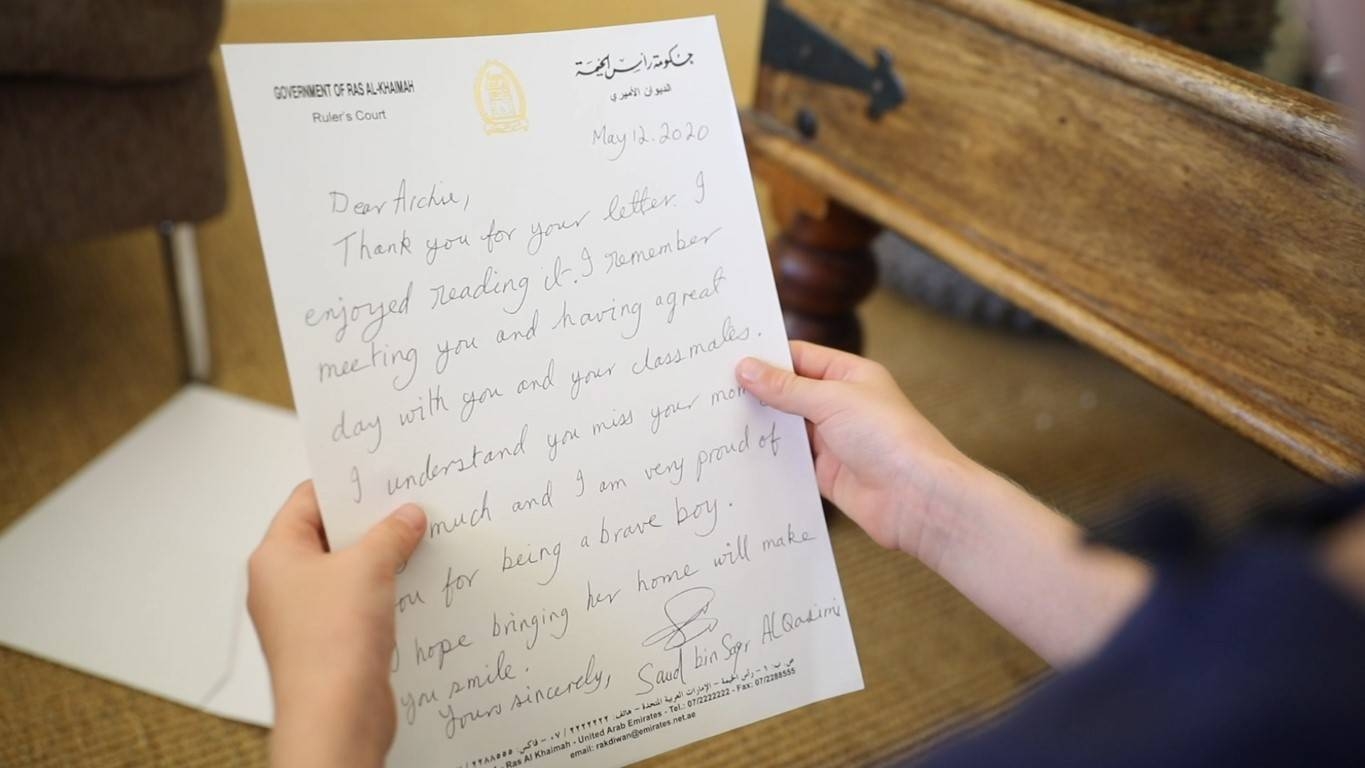 GOVERNMENT OF RAS AL-KHAIMAH
Ruler's Court
حكومة رأس الخيمة
الديوان الأميري
May 12. 2020
Dear Archie,
Thank you for your letter. I
enjoyed reading it. I remember
meeting you and having a great
day with you and your classmates.
I understand you miss your mom
much and I am very proud of
you for being a brave boy.
I hope bringing her home will make
you smile.
Yours sincerely,
Saud bin Saqr Al Qasimi
ص.ب: ١ – رأس الخيمة – الإمارات العربية المتحدة – هاتف: ٠٧/٢٢٢٢٢٢٢ – فاكس: ٠٧/٢٢٨٨٥٥٥
Ras Al Khaimah - United Arab Emirates - Tel.: 07/2222222 - Fax: 07/2288555
email: rakdiwan@emirates.net.ae